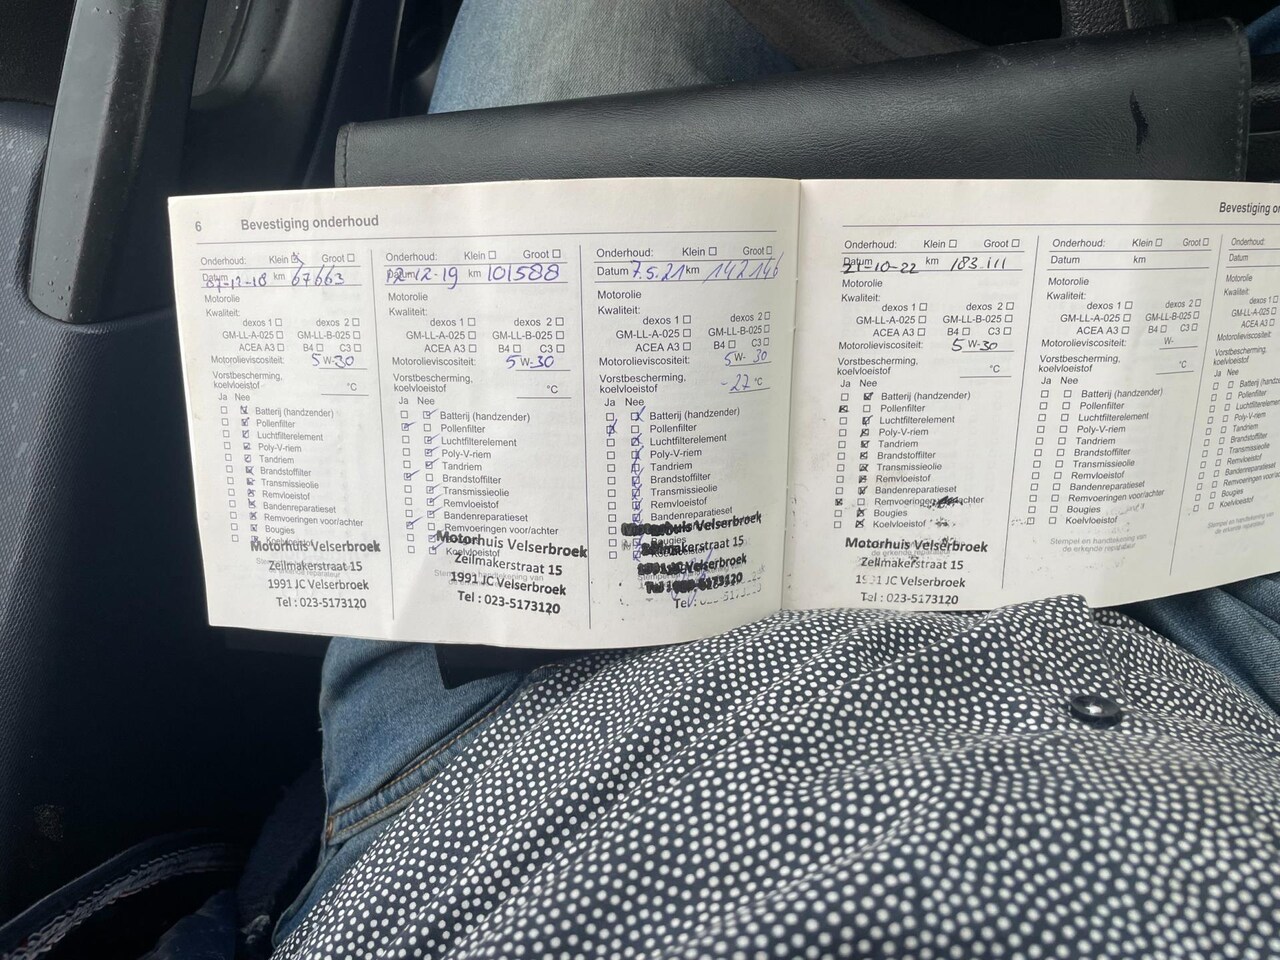 6 Bevestiging onderhoud
Onderhoud: Klein Groot
Datum 07-12-18 km 67663
Motorolie
Kwaliteit:
dexos 1 dexos 2
GM-LL-A-025 GM-LL-B-025
ACEA A3 B4 C3
Motorolieviscositeit: 5 W-30
Vorstbescherming,
koelvloeistof °C
Ja Nee
Batterij (handzender)
Pollenfilter
Luchtfilterelement
Poly-V-riem
Tandriem
Brandstoffilter
Transmissieolie
Remvloeistof
Bandenreparatieset
Remvoeringen voor/achter
Bougies
Motorhuis Velserbroek
Zeilmakerstraat 15
de erkende reparateur
1991 JC Velserbroek
Tel : 023-5173120
Onderhoud: Klein Groot
Datum 12-12-19 km 101588
Motorolie
Kwaliteit:
dexos 1 dexos 2
GM-LL-A-025 GM-LL-B-025
ACEA A3 B4 C3
Motorolieviscositeit: 5 W-30
Vorstbescherming,
koelvloeistof °C
Ja Nee
Batterij (handzender)
Pollenfilter
Luchtfilterelement
Poly-V-riem
Tandriem
Brandstoffilter
Transmissieolie
Remvloeistof
Bandenreparatieset
Remvoeringen voor/achter
Motorhuis Velserbroek
Koelvloeistof
Zeilmakerstraat 15
1991 JC Velserbroek
Tel : 023-5173120
Onderhoud: Klein Groot
Datum 7.5.21 km 142146
Motorolie
Kwaliteit:
dexos 1 dexos 2
GM-LL-A-025 GM-LL-B-025
ACEA A3 B4 C3
Motorolieviscositeit: 5 W- 30
Vorstbescherming,
koelvloeistof -27 °C
Ja Nee
Batterij (handzender)
Pollenfilter
Luchtfilterelement
Poly-V-riem
Tandriem
Brandstoffilter
Transmissieolie
Remvloeistof
Bandenreparatieset
Motorhuis Velserbroek
Bougies
Zeilmakerstraat 15
1991 JC Velserbroek
Tel : 023-5173120
Bevestiging
Onderhoud: Klein Groot
Datum 21-10-22 km 183.111
Motorolie
Kwaliteit:
dexos 1 dexos 2
GM-LL-A-025 GM-LL-B-025
ACEA A3 B4 C3
Motorolieviscositeit: 5 W-30
Vorstbescherming,
koelvloeistof °C
Ja Nee
Batterij (handzender)
Pollenfilter
Luchtfilterelement
Poly-V-riem
Tandriem
Brandstoffilter
Transmissieolie
Remvloeistof
Bandenreparatieset
Remvoeringen achter
Bougies
Koelvloeistof
Motorhuis Velserbroek
de erkende reparateur
Zeilmakerstraat 15
1991 JC Velserbroek
Tel : 023-5173120
Onderhoud: Klein Groot
Datum km
Motorolie
Kwaliteit:
dexos 1 dexos 2
GM-LL-A-025 GM-LL-B-025
ACEA A3 B4 C3
Motorolieviscositeit: W-
Vorstbescherming,
koelvloeistof °C
Ja Nee
Batterij (handzender)
Pollenfilter
Luchtfilterelement
Poly-V-riem
Tandriem
Brandstoffilter
Transmissieolie
Remvloeistof
Bandenreparatieset
Remvoeringen voor/achter
Bougies
Koelvloeistof
Stempel en handtekening van
de erkende reparateur
Onderhoud:
Datum
Motorolie
Kwaliteit:
dexos 1
GM-LL-A-025
ACEA A3
Motorolieviscositeit:
Vorstbescherming,
koelvloeistof
Ja Nee
Batterij
Pollenfilter
Luchtfilterelement
Poly-V-riem
Tandriem
Brandstoffilter
Transmissieolie
Remvloeistof
Bandenreparatieset
Remvoeringen
Bougies
Koelvloeistof
Stempel en handtekening
de erkende